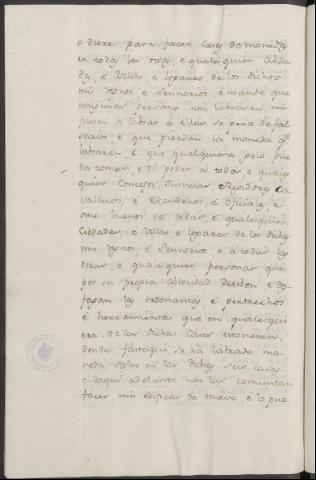 o diere para facer Casas de moneda
en todas las otras, e qualesquier Cibda
des, e Villas, e logares de los dichos
mis regnos e Sennorios, e mande que
ningunas personas non labrasen nin
fuesen a labrar a ellas so pena de fal
sarios, e que pierdan la moneda q̃
labraren, e que qualquiera gelo pue
da tomar, e di poder a todas, e quales
quier Concejos, Justicias, e Regidores Ca
valleros, e Escuderos, e Oficiales, e
omes buenos de todas, e qualesquier
Cibdades, e Villas e logares de los dichos
mis regnos, e Sennorios, e a todas las
otras, e qualesquier personas que
por su propia abtoridad derriben e des
fagan las e pertrechos
e herramientas que en qualesqui
era de las dichas Casas estovieren,
donde fasta aqui se ha labrado mo
neda salvo en las dichas seis casas
e daqui adelante non las consientan
facer, nin edificar de nuevo, e lo que